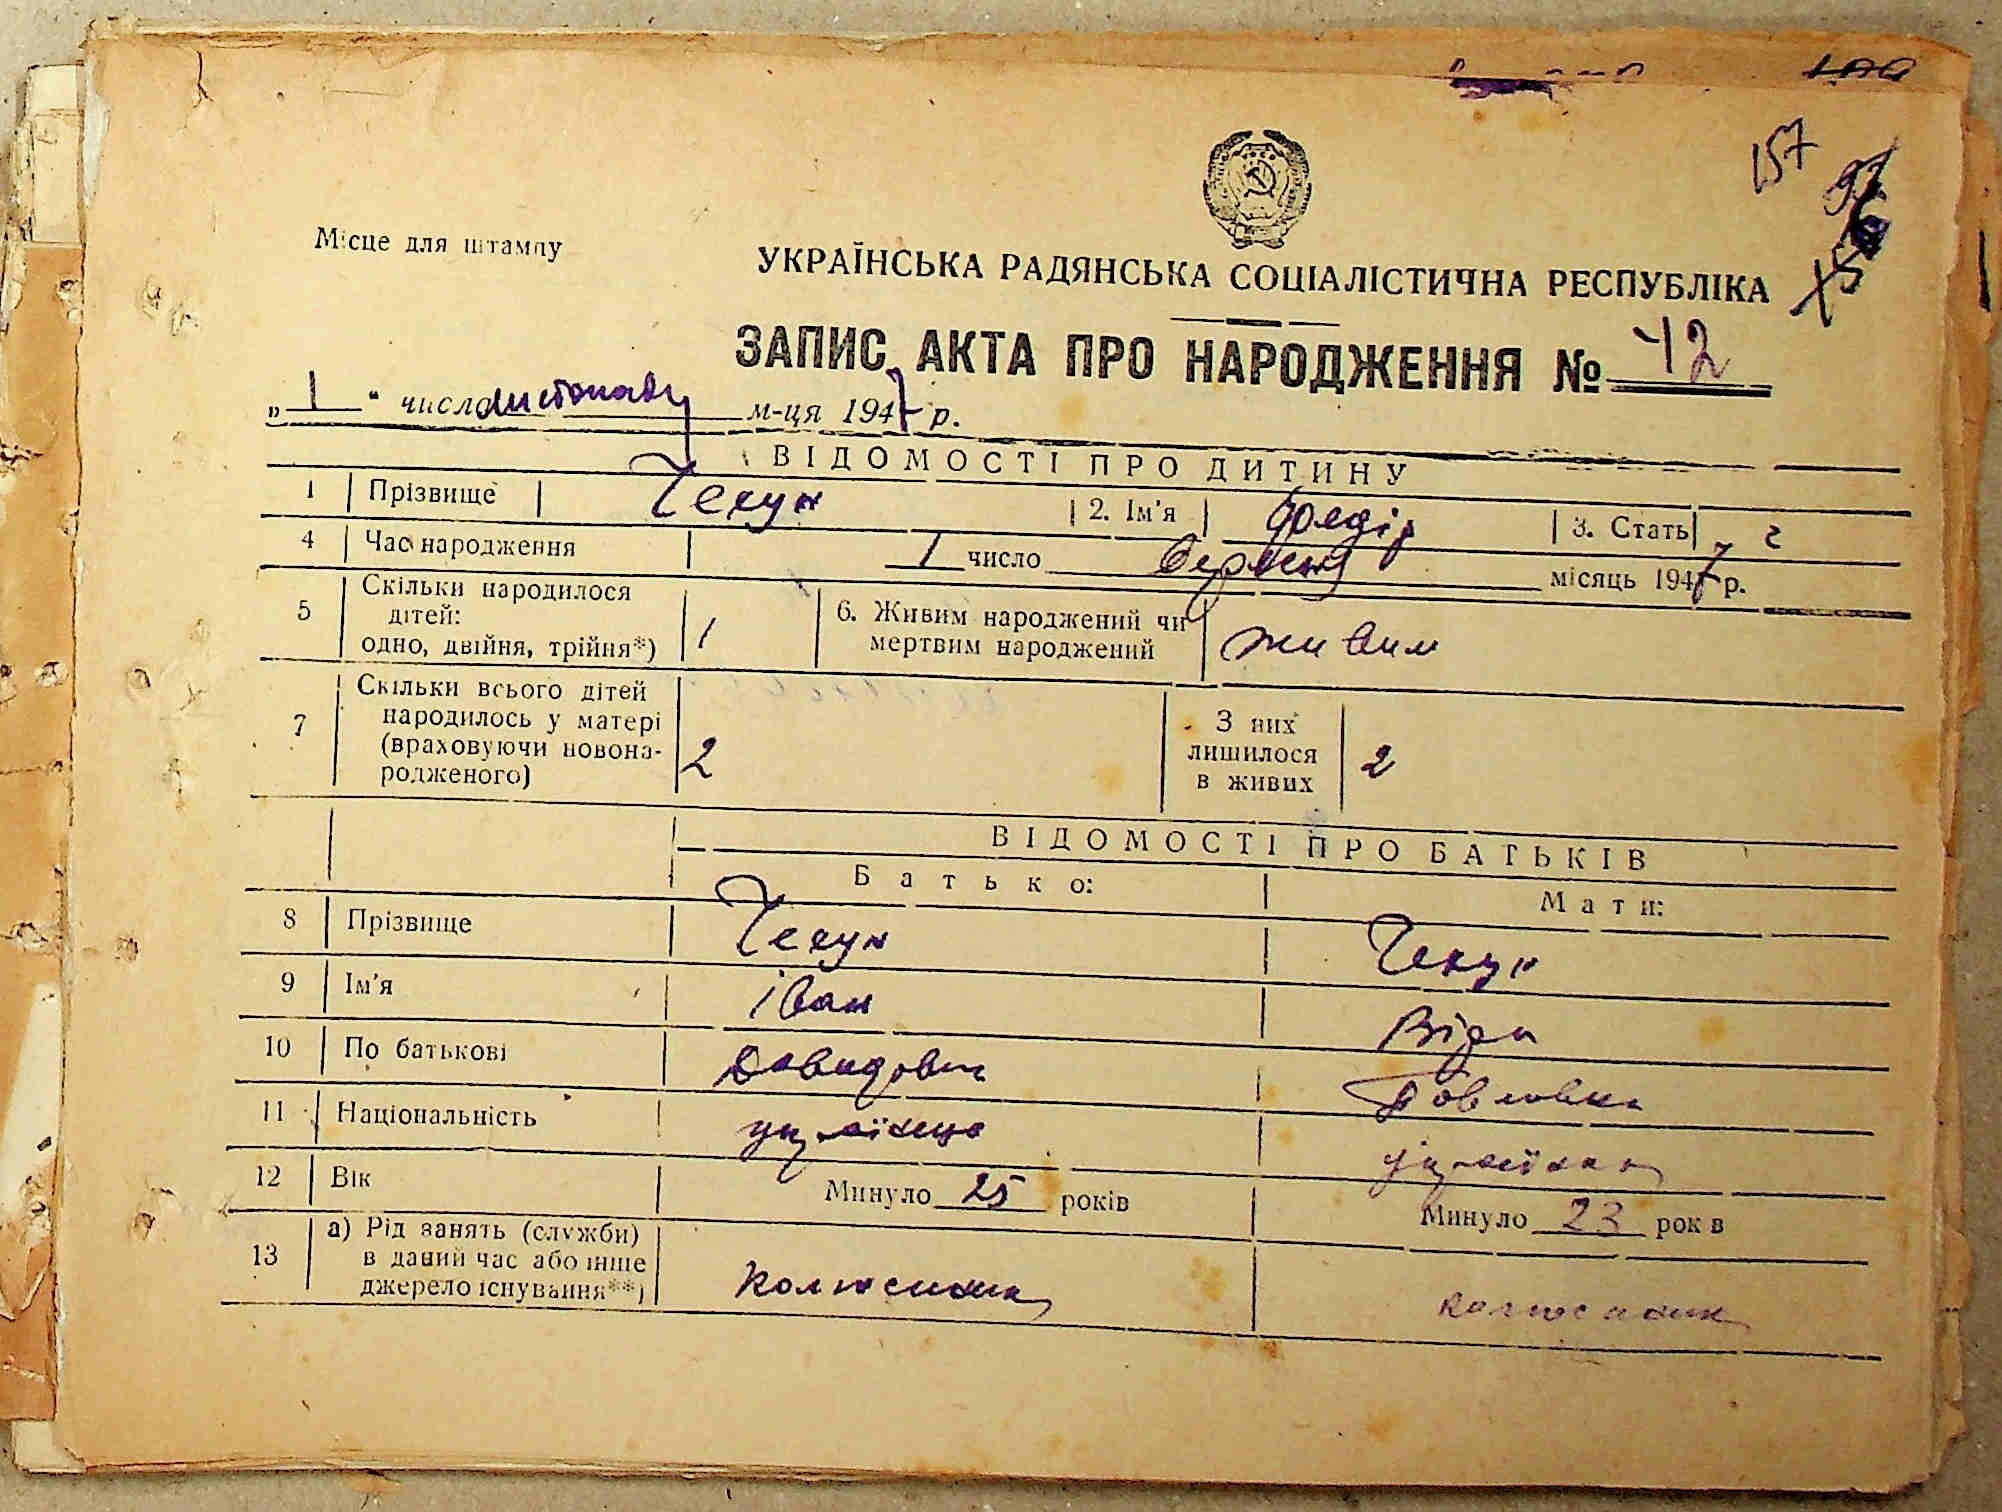 157
Місце для штампу
УКРАЇНСЬКА РАДЯНСЬКА СОЦІАЛІСТИЧНА РЕСПУБЛІКА
ЗАПИС АКТА ПРО НАРОДЖЕННЯ № 42
„ 1 “ число листопаду м-ця 1947 р.
ВІДОМОСТІ ПРО ДИТИНУ
1 Прізвище Чекун 2. Ім'я Федір 3. Стать ч
4 Час народження 1 число червня місяць 1947 р.
5 Скільки народилося дітей: одно, двійня, трійня*) 1 6. Живим народжений чи мертвим народжений живим
7 Скільки всього дітей народилось у матері (враховуючи новона-родженого) 2 З них лишилося в живих 2
ВІДОМОСТІ ПРО БАТЬКІВ
Батько: Мати:
8 Прізвище Чекун Чекун
9 Ім'я Іван Віра
10 По батькові Давидович Павловна
11 Національність українець українка
12 Вік Минуло 25 років Минуло 23 років
13 а) Рід занять (служби) в даний час або інше джерело існування**) колгоспник колгоспник